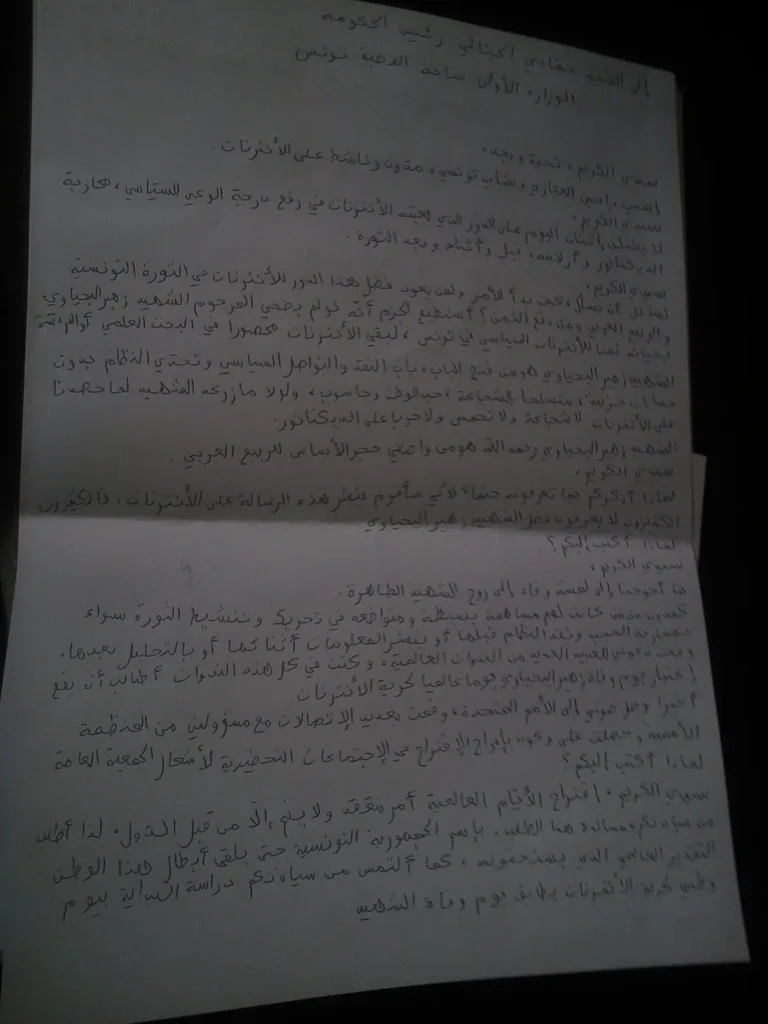 إلى السيد حمادي الجبالي رئيس الحكومة
الوزارة الأولى ساحة القصبة تونس
سيدي الكريم، تحية وبعد،
إسمي ياسين العياري، شاب تونسي، مدون وناشط على الأنترنات.
سيدي الكريم،
لا يختلف إثنان اليوم على الدور الذي لعبته الأنترنات في رفع درجة الوعي السياسي، محاربة
الديكتاتور و أزلامه، قبل وأثناء وبعد الثورة.
سيدي الكريم،
لنا أن نسأل، كيف بدأ الأمر ولمن يعود فضل هذا الدور للأنترنات في الثورة التونسية
و الربيع العربي ومن دفع الثمن؟ أستطيع الجزم أنه لو لم يضحي المرحوم الشهيد زهير اليحياوي
بحياته ثمنا للأنترنات السياسي في تونس، لبقي الأنترنات محصورا في البحث العلمي أو الدردشة
الشهيد زهير اليحياوي هو من فتح الباب، باب النقد والتواصل السياسي و تحدي النظام بدون
حسابات حزبية، متسلحا بالشجاعة، حب الوطن وحاسوب، ولولا ما زرعه الشهيد لما حصدنا
على الأنترنات لا شجاعة ولا تحمس ولا حربا على الديكتاتور.
الشهيد زهير اليحياوي رحمه الله هو من واضعي حجر الأساس للربيع العربي.
سيدي الكريم،
لماذا أذكركم بما تعرفونه حتما؟ لأني سأقوم بنشر هذه الرسالة على الأنترنات، فالكثيرون
الكثيرون لا يعرفون فضل الشهيد زهير اليحياوي.
لماذا أكتب إليكم؟
سيدي الكريم،
ما أحوجنا إلى لمسة وفاء إلى روح الشهيد الطاهرة.
كمدون ممن كانت لهم مساهمة بسيطة و متواضعة في تحريك و تنشيط الثورة سواء
بمحاربة الحجب و نقد النظام قبلها أو بنشر المعلومات أثنائها أو بالتحليل بعدها،
وقعت دعوتي للعديد العديد من الندوات العالمية، و كنت في كل هذه الندوات أطالب أن يقع
إعتبار يوم وفاة زهير اليحياوي يوما عالميا لحرية الأنترنات.
أخيرا وصل صوتي إلى الأمم المتحدة، وقمت بعديد الإتصالات مع مسؤولين من المنظمة
الأممية وحصلت على وعود بإدراج الإقتراح في الإجتماعات التحضيرية لأشغال الجمعية العامة
لماذا أكتب إليكم؟
سيدي الكريم، إقتراح الأيام العالمية أمر معقد ولا يتم إلا من قبل الدول، لذا أطلب
من سيادتكم، مساندة هذا الطلب، بإسم الجمهورية التونسية حتى يلقى أبطال هذا الوطن
التقدير العالمي الذي يستحقونه، كما ألتمس من سيادتكم دراسة البداية بيوم
وطني لحرية الأنترنات يطابق يوم وفاة الشهيد